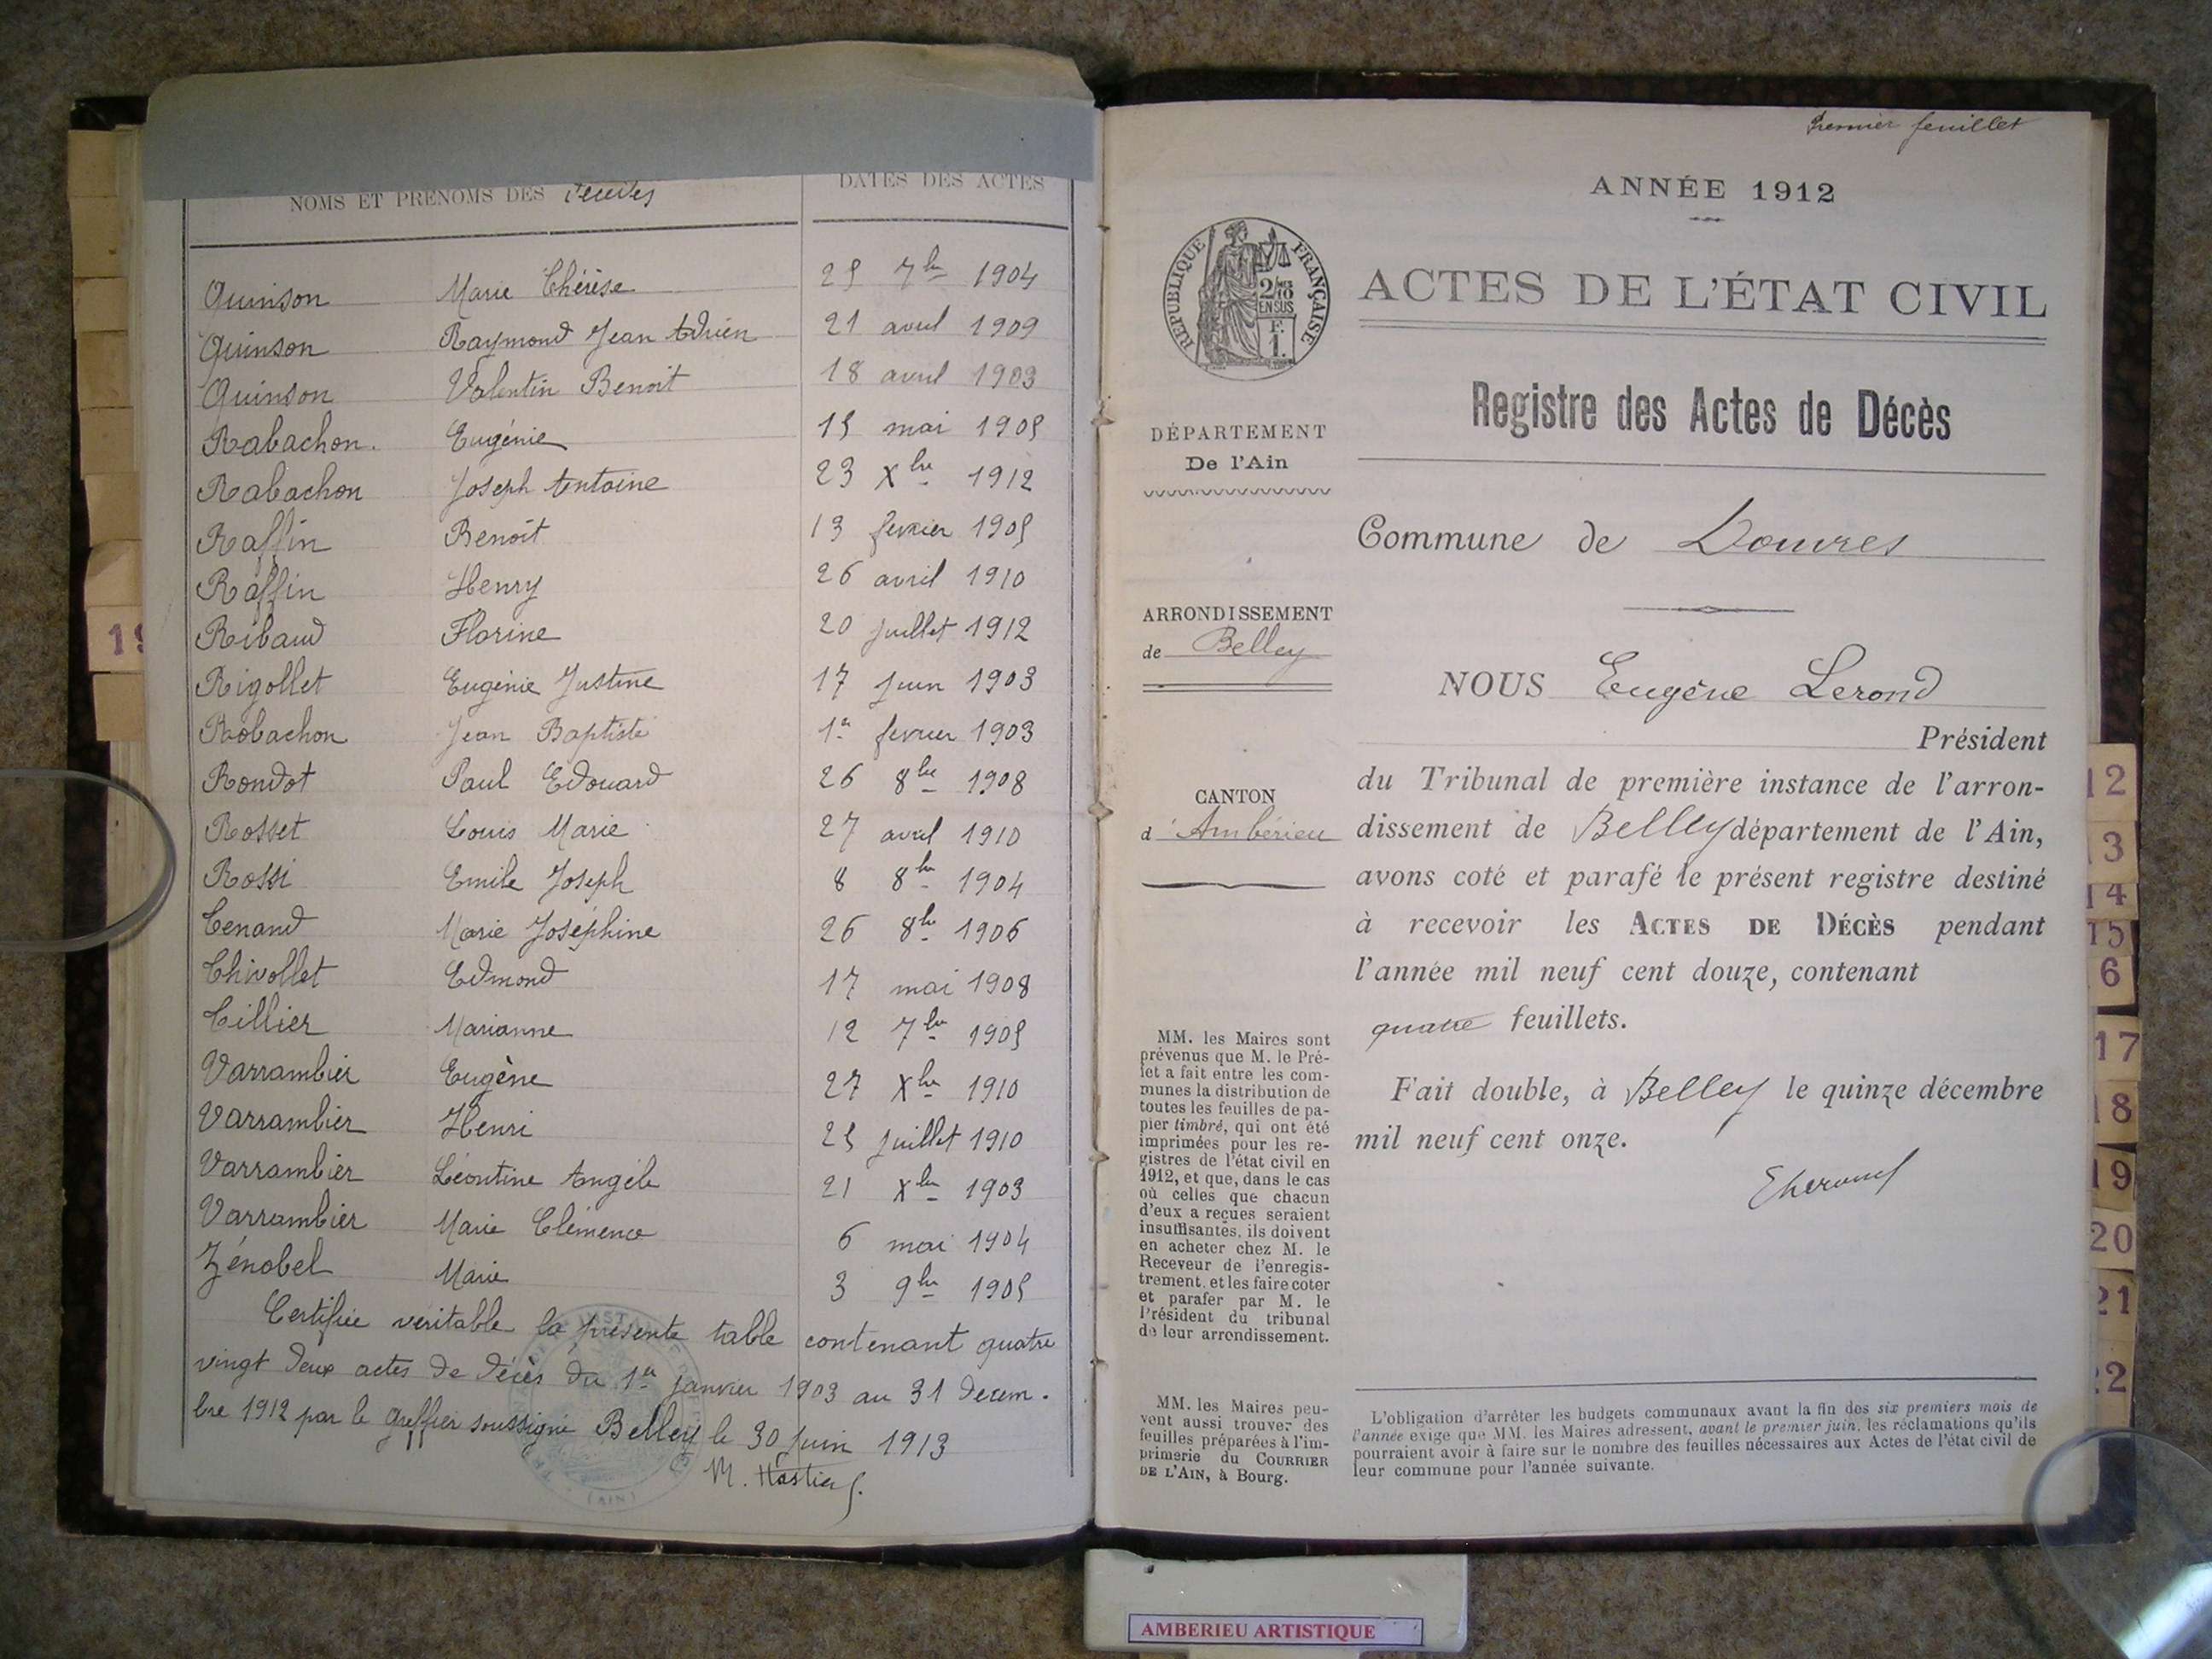 NOMS ET PRÉNOMS DES Décédés DATES DES ACTES
Quinson Marie Thérèse 25 7bre 1904
Quinson Raymond Jean Adrien 21 avril 1909
Quinson Valentin Benoit 18 avril 1903
Rabachon. Eugénie 15 mai 1905
Rabachon Joseph Antoine 23 Xbre 1912
Raffin Benoît 13 fevrier 1905
Raffin Henry 26 avril 1910
Ribaud Florine 20 juillet 1912
Rigollet Eugénie Justine 17 juin 1903
Robachon Jean Baptiste 1er fevrier 1903
Rondot Paul Edouard 26 8bre 1908
Rosset Louis Marie 27 avril 1910
Rossi Emile Joseph 8 8bre 1904
Tenand Marie Joséphine 26 8bre 1906
Thivollet Edmond 17 mai 1908
Tillier Marianne 12 7bre 1905
Varrambier Eugène 27 Xbre 1910
Varrambier Henri 25 juillet 1910
Varrambier Léontine Angèle 21 Xbre 1903
Varrambier Marie Clémence 6 mai 1904
Zénobel Marie 3 9bre 1905
Certifiée véritable la présente table contenant quatre
vingt deux actes de décès du 1er janvier 1903 au 31 decem-
bre 1912 par le greffier soussigné Belley le 30 juin 1913
M. Hastier
(AIN)
19
Premier feuillet
ANNÉE 1912
RÉPUBLIQUE FRANÇAISE
2/10
EN SUS
F.
1.
ACTES DE L'ÉTAT CIVIL
Registre des Actes de Décès
DÉPARTEMENT
De l'Ain
Commune de Douvres
ARRONDISSEMENT
de Belley
NOUS Eugène Lerond
Président
du Tribunal de première instance de l'arron-
CANTON
d'Ambérieu
dissement de Belley département de l'Ain,
avons coté et parafé le présent registre destiné
à recevoir les ACTES DE DÉCÈS pendant
l'année mil neuf cent douze, contenant
quatre feuillets.
Fait double, à Belley le quinze décembre
mil neuf cent onze.
MM. les Maires sont
prévenus que M. le Pré-
fet a fait entre les com-
munes la distribution de
toutes les feuilles de pa-
pier timbré, qui ont été
imprimées pour les re-
gistres de l'état civil en
1912, et que, dans le cas
où celles que chacun
d'eux a reçues seraient
insuffisantes, ils doivent
en acheter chez M. le
Receveur de l'enregis-
trement, et les faire coter
et parafer par M. le
Président du tribunal
de leur arrondissement.
MM. les Maires peu-
vent aussi trouver des
feuilles préparées à l'im-
primerie du COURRIER
DE L'AIN, à Bourg.
L'obligation d'arrêter les budgets communaux avant la fin des six premiers mois de
l'année exige que MM. les Maires adressent, avant le premier juin, les réclamations qu'ils
pourraient avoir à faire sur le nombre des feuilles nécessaires aux Actes de l'état civil de
leur commune pour l'année suivante.
12
3
14
15
6
17
18
19
20
21
22
AMBERIEU ARTISTIQUE